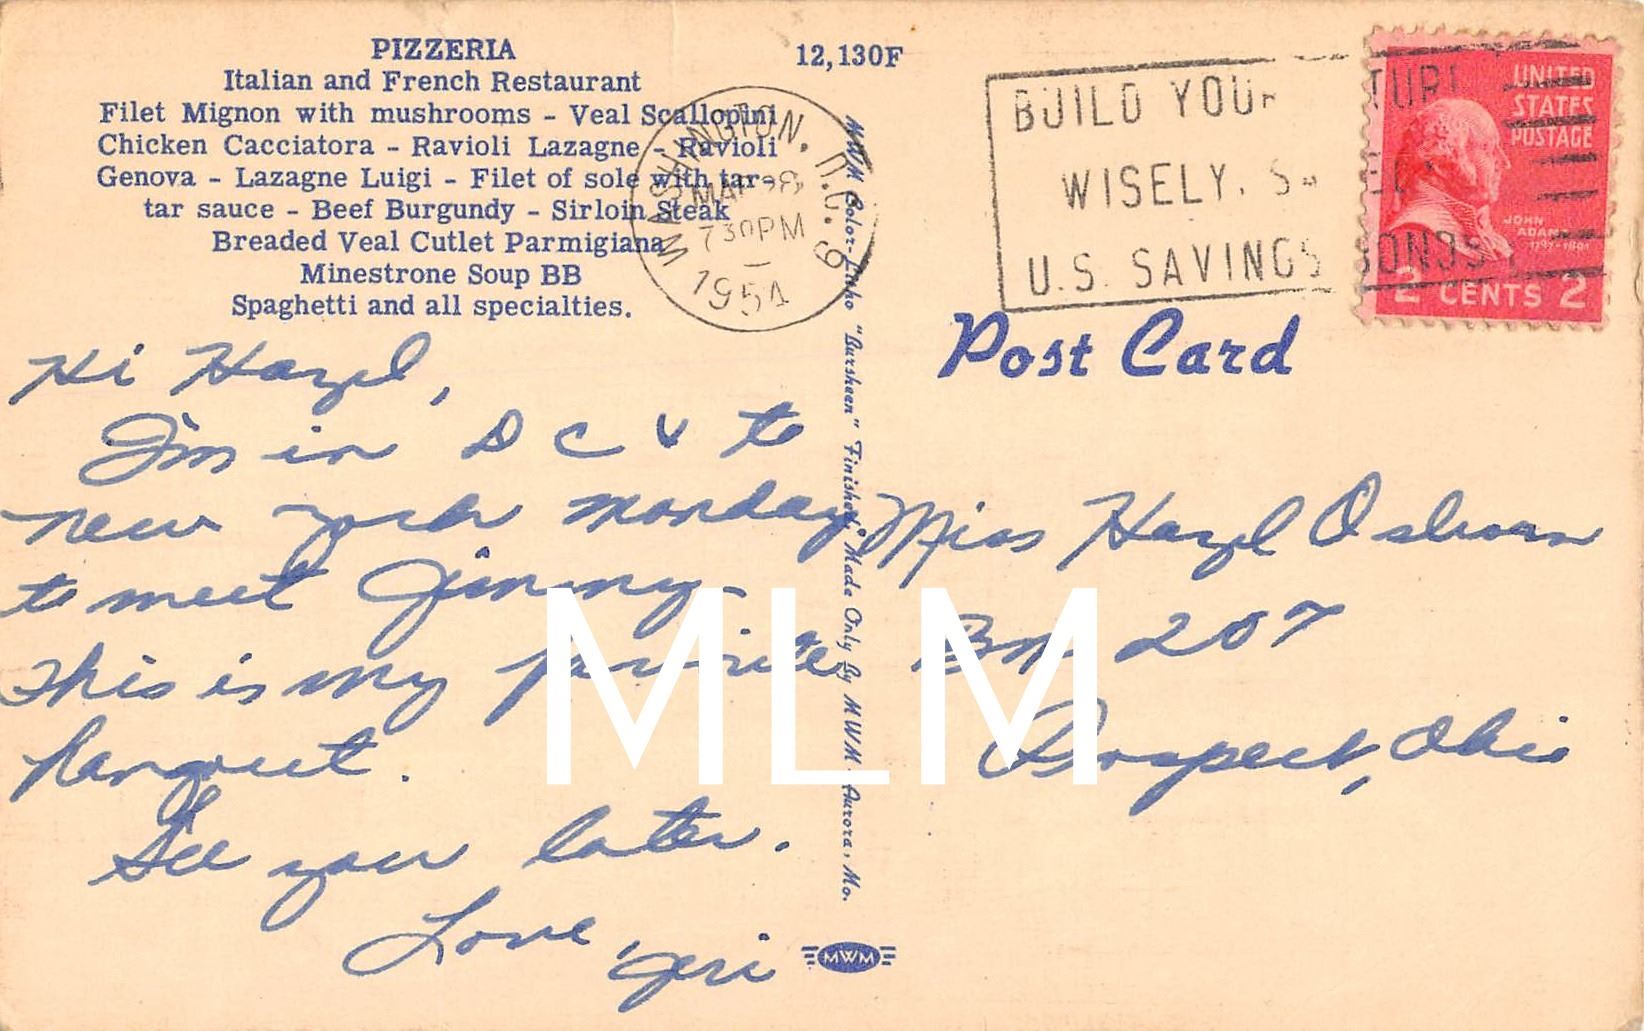 PIZZERIA
Italian and French Restaurant
Filet Mignon with mushrooms - Veal Scallopini
Chicken Cacciatora - Ravioli Lazagne - Ravioli
Genova - Lazagne Luigi - Filet of sole with tar-
tar sauce - Beef Burgundy - Sirloin Steak
Breaded Veal Cutlet Parmigiana
Minestrone Soup BB
Spaghetti and all specialties.
12,130F
WASHINGTON, D.C. 9
MAR 28
730PM
1954
BUILD YOUR FUTURE
WISELY, SAFELY
U.S. SAVINGS BONDS
UNITED
STATES
POSTAGE
JOHN
ADAMS
1797-1801
2 CENTS 2
Post Card
Hi Hazel,
I'm in D C & to
new york monday
to meet Jimmy.
This is my favorite
hangout.
See you later.
Love,
Jeri
MWM Color-Litho "Bursheen" Finished. Made Only By MWM. Aurora, Mo.
Miss Hazel Osborn
Bx 207
Prospect, Ohio
MLM
MWM